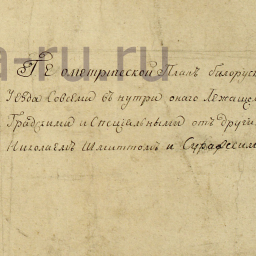 a-ru.ru
Геометрической Планъ билорус
Уезда Совсеми въ нутри онаго Лежащ
и Специальными отъ други
Николаемъ Шмиттомъ и